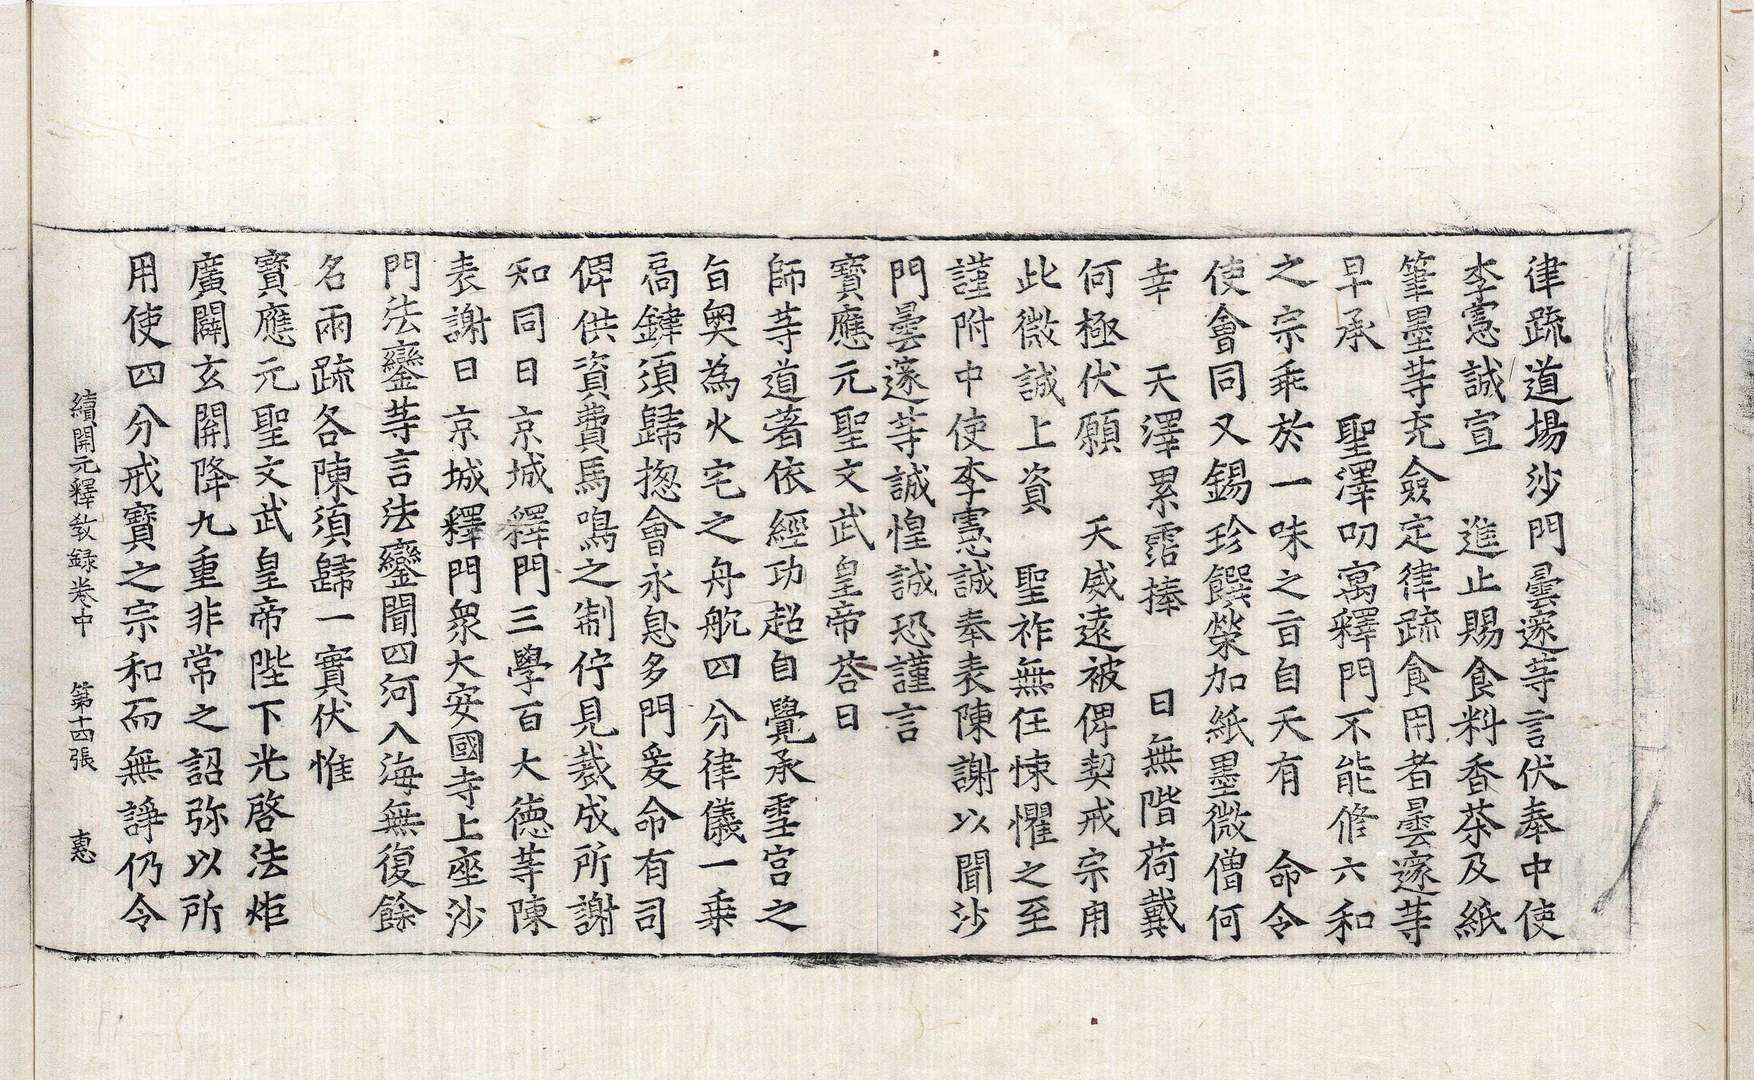 律疏道場沙門曇邃䓁言伏奉中使
李憲誠宣　進止賜食料香茶及紙
筆墨䓁充僉定律疏食用者曇邃䓁
早承　聖澤叨寓釋門不能修六和
之宗乖於一味之旨自天有　命令
使會同又錫珎饌榮加紙墨微僧何
幸　天澤累霑捧　日無階荷戴
何極伏願　天威遠被俾契戒宗用
此微誠上資　聖祚無任悚懼之至
謹附中使李憲誠奉表陳謝以聞沙
門曇邃䓁誠惶誠恐謹言
寶應元聖文武皇帝荅曰
師䓁道著依經功超自覺承雪宮之
旨奧為火宅之舟航四分律儀一乘
高鍵須歸揔會永息多門爰命有司
俾供資費馬鳴之制佇見裁成所謝
知同日京城釋門三學百大德䓁陳
表謝曰京城釋門衆大安國寺上座沙
門法鑾䓁言法鑾聞四河入海無復餘
名兩疏各陳須歸一實伏惟
寶應元聖文武皇帝陛下光啓法炬
廣闢玄關降九重非常之詔弥以所
用使四分戒寶之宗和而無諍仍令
續開元釋教録卷中　第十四張　惠